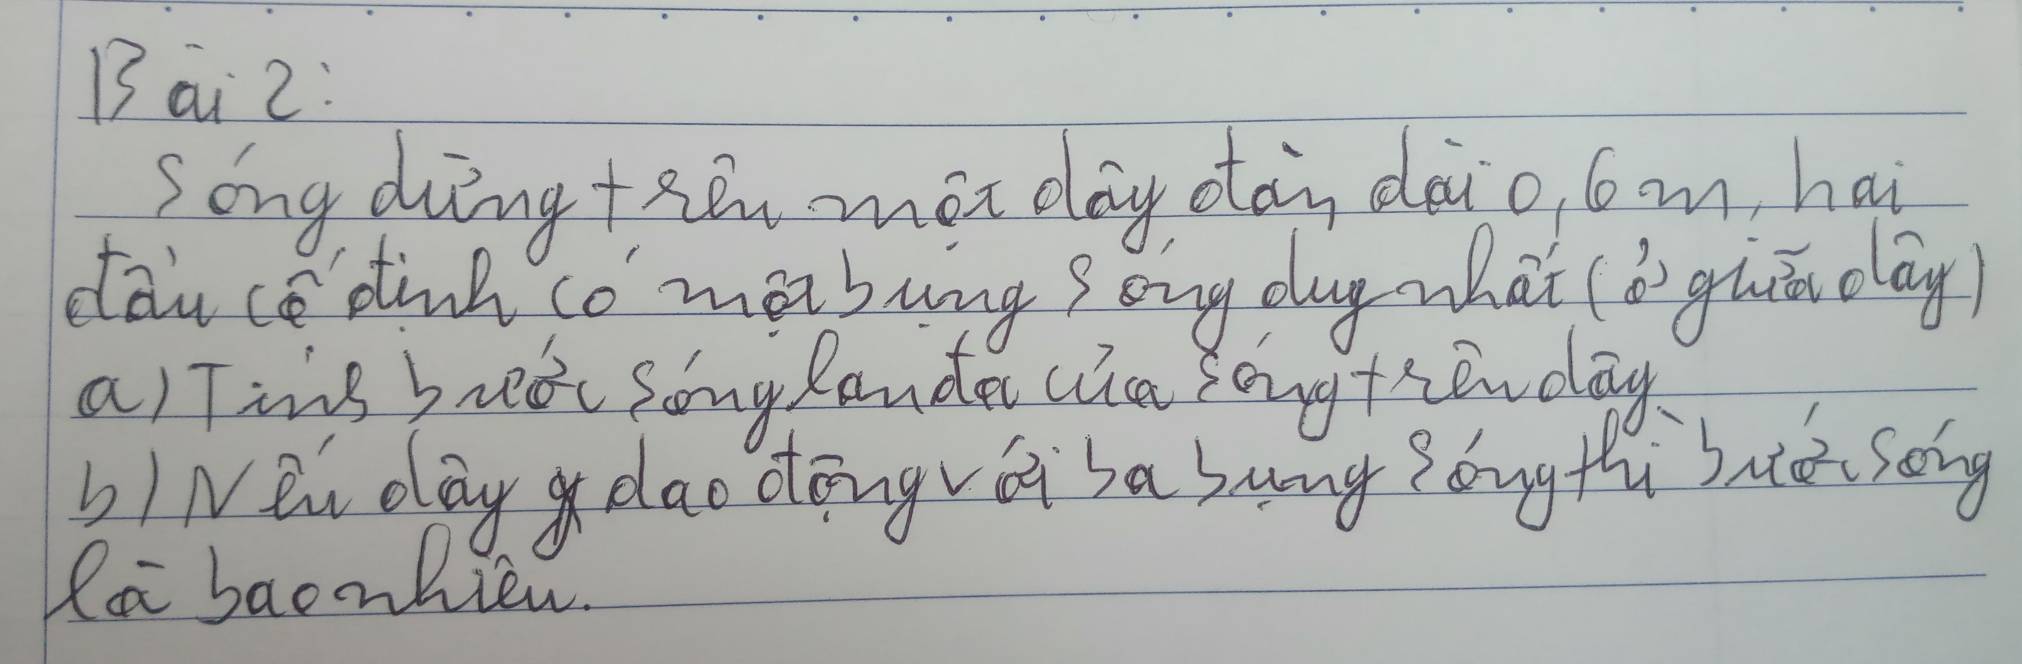 Bài 2:
Sóng dừng trên một dây đàn dài 0,6m, hai
đầu cố định có một bụng sóng duy nhất (ở giữa dây)
a) Tính bước sóng lanđa của sóng trên dây
b) Nếu dây dao động với ba bụng sóng thì bước sóng
là bao nhiêu.